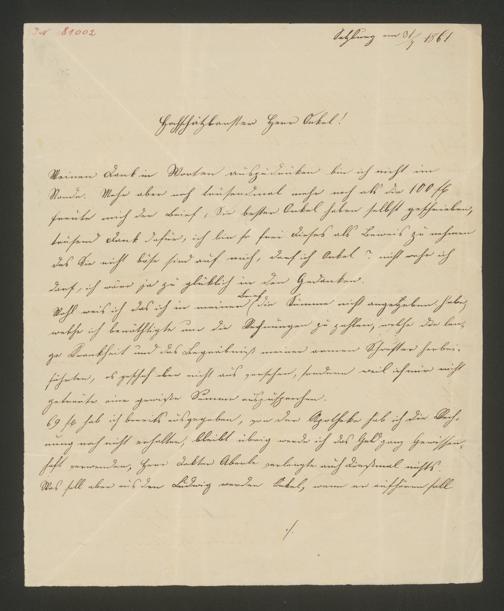 IN 81002
Salzburg am 31/7 1861
Hochschätzbarster Herr Onkel!
Meinen Dank in Worten auszudrücken bin ich nicht im
Stande. Mehr aber noch tausendmal mehr noch als die 100 fl
freute mich der Brief, Sie bester Onkel haben selbst geschrieben,
tausend Dank dafür, ich bin so frei dieses als Beweis zu nehmen
das Sie nicht böse sind auf mich, darf ich Onkel? nicht wahr ich
darf, ich wäre ja zu glücklich in den Gedanken.
Wohl weis ich das ich in meinem Brief die Summe nicht angegeben habe,
welche ich benöthigte um die Rechnungen zu zahlen, welche die lan-
ge Krankheit und das Begräbniß meiner armen Schwester herbei-
führten, es geschah aber nicht aus vergessen, sondern weil ich mir nicht
getraute eine gewisse Summe auszusprechen.
69 fl hab ich bereits ausgegeben, von der Apotheke hab ich die Rech-
nung noch nicht erhalten, bleibt übrig werde ich das Geld ganz gewissen-
haft verwenden, Herr Doktor Aberle verlangte auch diesmal nichts.
Was soll aber aus den Ludwig werden Onkel, wenn er aufhören soll
./.